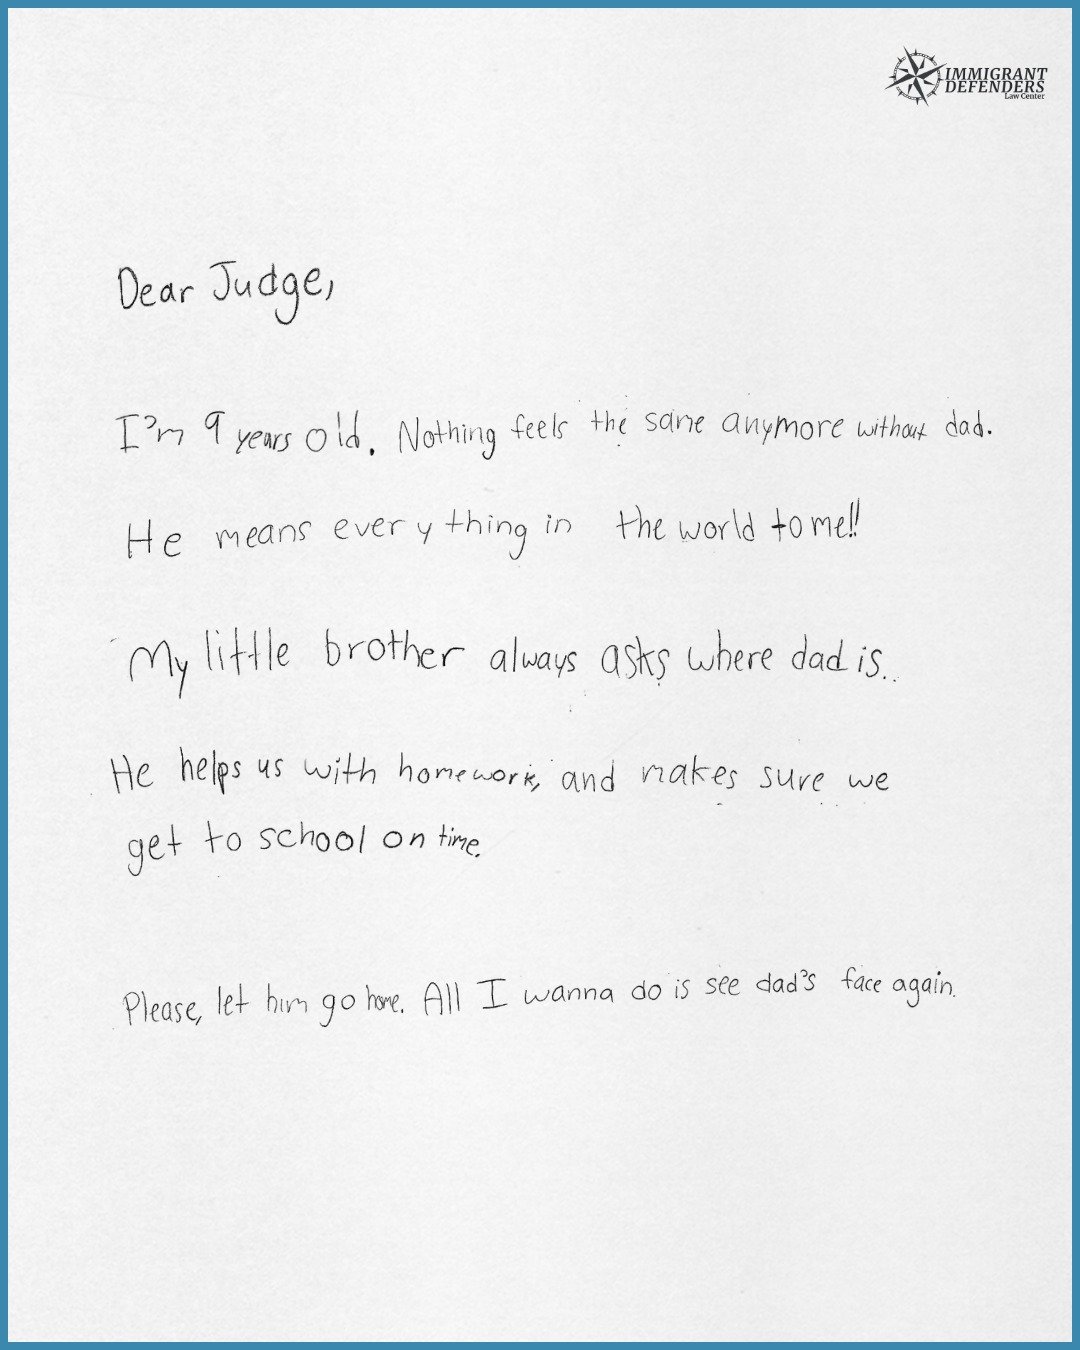 IMMIGRANT
DEFENDERS
Law Center
Dear Judge,
I'm 9 years old. Nothing feels the same anymore without dad.
He means everything in the world to me!!
My little brother always asks where dad is..
He helps us with homework, and makes sure we
get to school on time.
Please, let him go home. All I wanna do is see dad's face again.